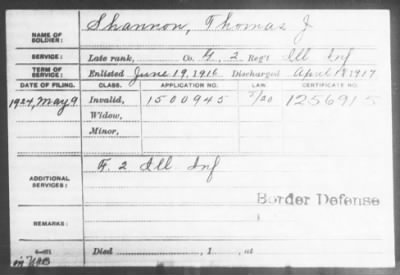 NAME OF SOLDIER: Shannon, Thomas J
SERVICE: Late rank, Co. G, 2 Reg't Ill Inf
TERM OF SERVICE: Enlisted June 19, 1916 Discharged April 18 1917
DATE OF FILING. CLASS. APPLICATION NO. LAW. CERTIFICATE NO.
1924, May 9 Invalid, 1500945 5/20 1256915
Widow,
Minor,
ADDITIONAL SERVICES: F. 2 Ill Inf
Border Defense
REMARKS:
Died , 1 , at